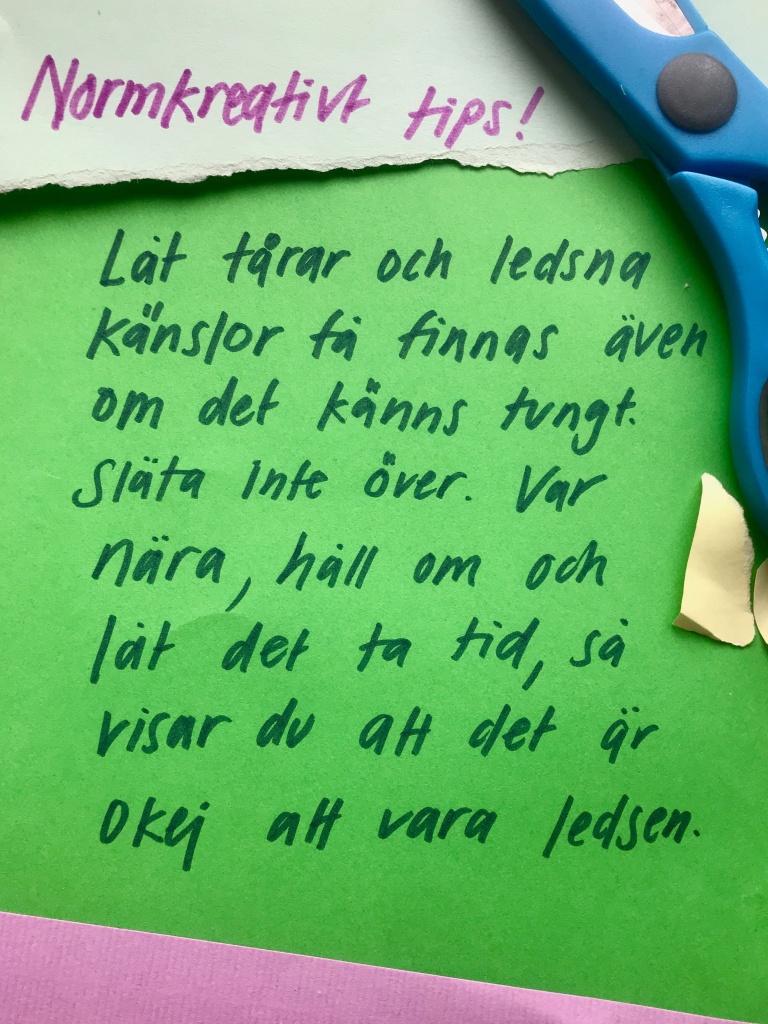 Normkreativt tips!
Låt tårar och ledsna
känslor få finnas även
om det känns tungt.
Släta inte över. Var
nära, håll om och
låt det ta tid, så
visar du att det är
okej att vara ledsen.